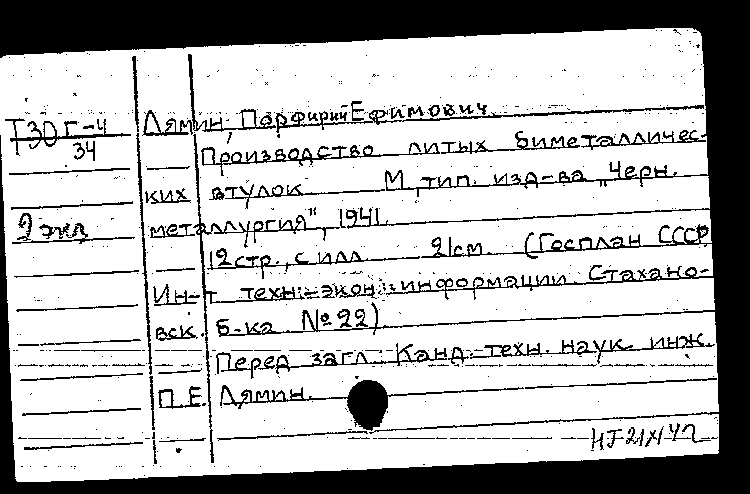 Т30Г-4
34
Лямин, Парфирий Ефимович.
Производство литых биметалличес-
ких втулок М, тип. изд-ва „Черн.
2 экз
металлургия", 1941.
12стр., с илл 21см. (Госплан СССР
Ин-т техн.-экон. информации. Стахано-
вск. Б-ка №22)
Перед загл.: Канд. техн. наук инж.
П.Е. Лямин.